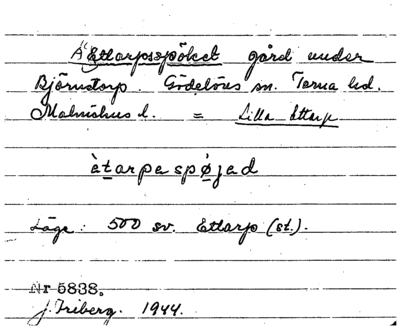 Ettarpsspöket gård under
Björnstorp. Gödelövs sn. Torna hd.
Malmöhus l. = Lilla Ettarp
ètarpespǿjad
Läge: 500 sv. Ettarp (st.).
Nr 5838.
J. Friberg. 1944.